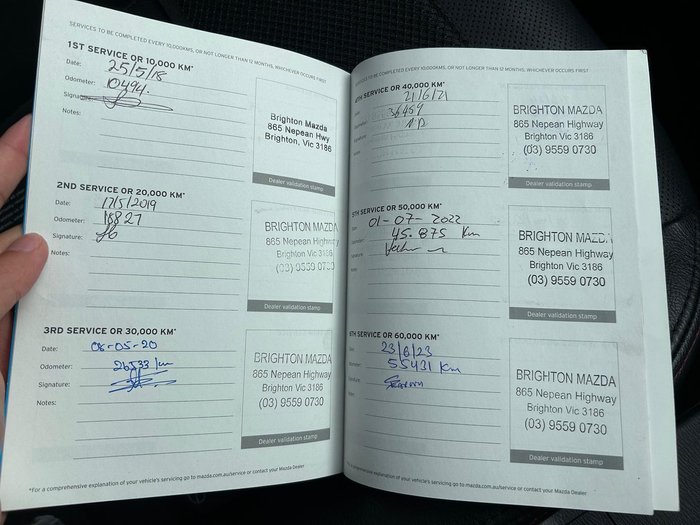 SERVICES TO BE COMPLETED EVERY 10,000KMS, OR NOT LONGER THAN 12 MONTHS, WHICHEVER OCCURS FIRST
1ST SERVICE OR 10,000 KM*
Date: 25/5/18
Odometer: 10494.
Signature:
Notes:
Brighton Mazda
865 Nepean Hwy
Brighton, Vic 3186
Dealer validation stamp
2ND SERVICE OR 20,000 KM*
Date: 17/5/2019
Odometer: 18827
Signature:
Notes:
BRIGHTON MAZDA
865 Nepean Highway
Brighton Vic 3186
(03) 9559 0730
Dealer validation stamp
3RD SERVICE OR 30,000 KM*
Date: 08-05-20
Odometer: 26533 km
Signature:
Notes:
BRIGHTON MAZDA
865 Nepean Highway
Brighton Vic 3186
(03) 9559 0730
Dealer validation stamp
*For a comprehensive explanation of your vehicle's servicing go to mazda.com.au/service or contact your Mazda Dealer
SERVICES TO BE COMPLETED EVERY 10,000KMS, OR NOT LONGER THAN 12 MONTHS, WHICHEVER OCCURS FIRST
4TH SERVICE OR 40,000 KM*
21/6/21
36459
BRIGHTON MAZDA
865 Nepean Highway
Brighton Vic 3186
(03) 9559 0730
Dealer validation stamp
5TH SERVICE OR 50,000 KM*
01-07-2022
45.875 Km
BRIGHTON MAZDA
865 Nepean Highway
Brighton Vic 3186
(03) 9559 0730
Dealer validation stamp
6TH SERVICE OR 60,000 KM*
23/6/23
55431 Km
BRIGHTON MAZDA
865 Nepean Highway
Brighton Vic 3186
(03) 9559 0730
Dealer validation stamp
*For a comprehensive explanation of your vehicle's servicing go to mazda.com.au/service or contact your Mazda Dealer